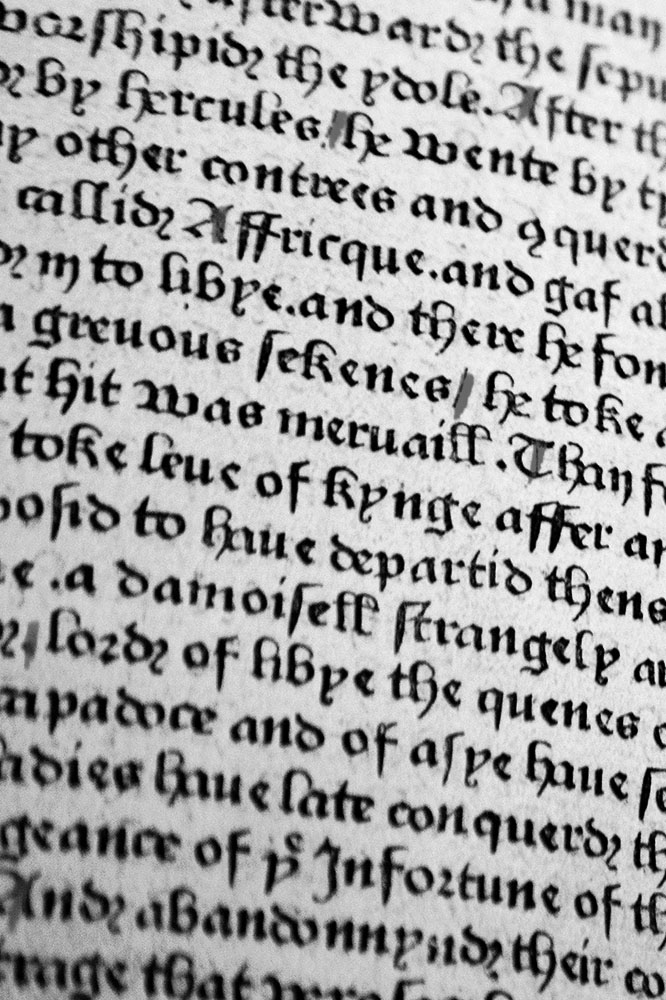 a man
afterward the ſepu
worſhipid the ydole. After th
by hercules / he wente by
other contrees and ꝯquerd
callid Affricque. and gaf
to libye. and there he fon
greuous ſekenes / he toke
hit was meruaill. Than
toke leue of kynge affer
poſid to haue departid thens
a damoiſell ſtrangely
/ lord of libye the quenes
apadoce and of aſye haue ſe
ladies haue late conquerd th
geance of yͤ Infortune of th
And abandonnyd their co
that